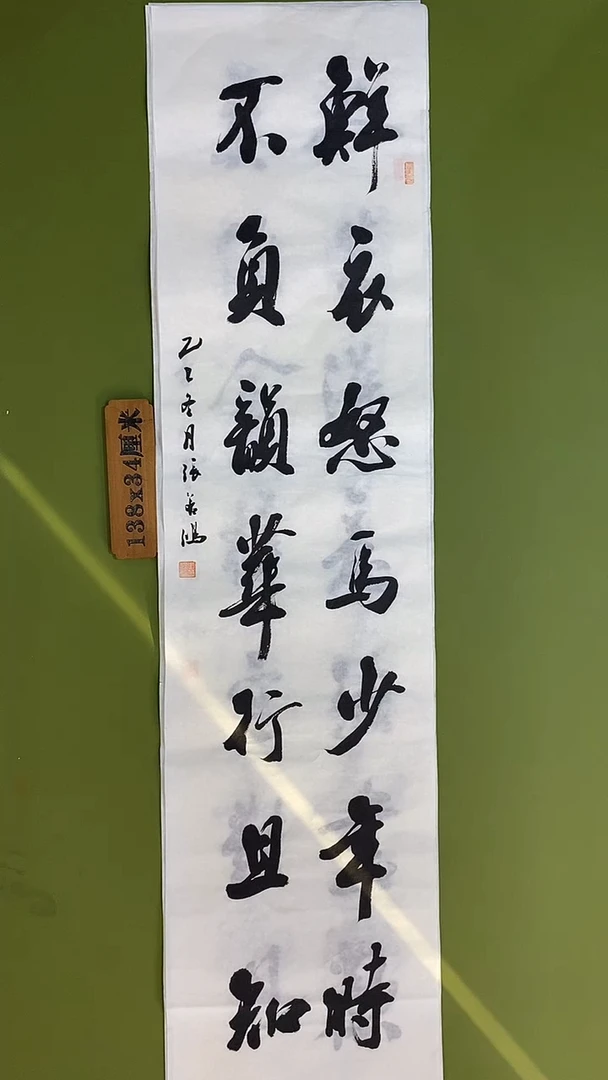 鮮衣怒馬少年時
不負韻華行且知
乙巳冬月張若鴻
138x34厘米